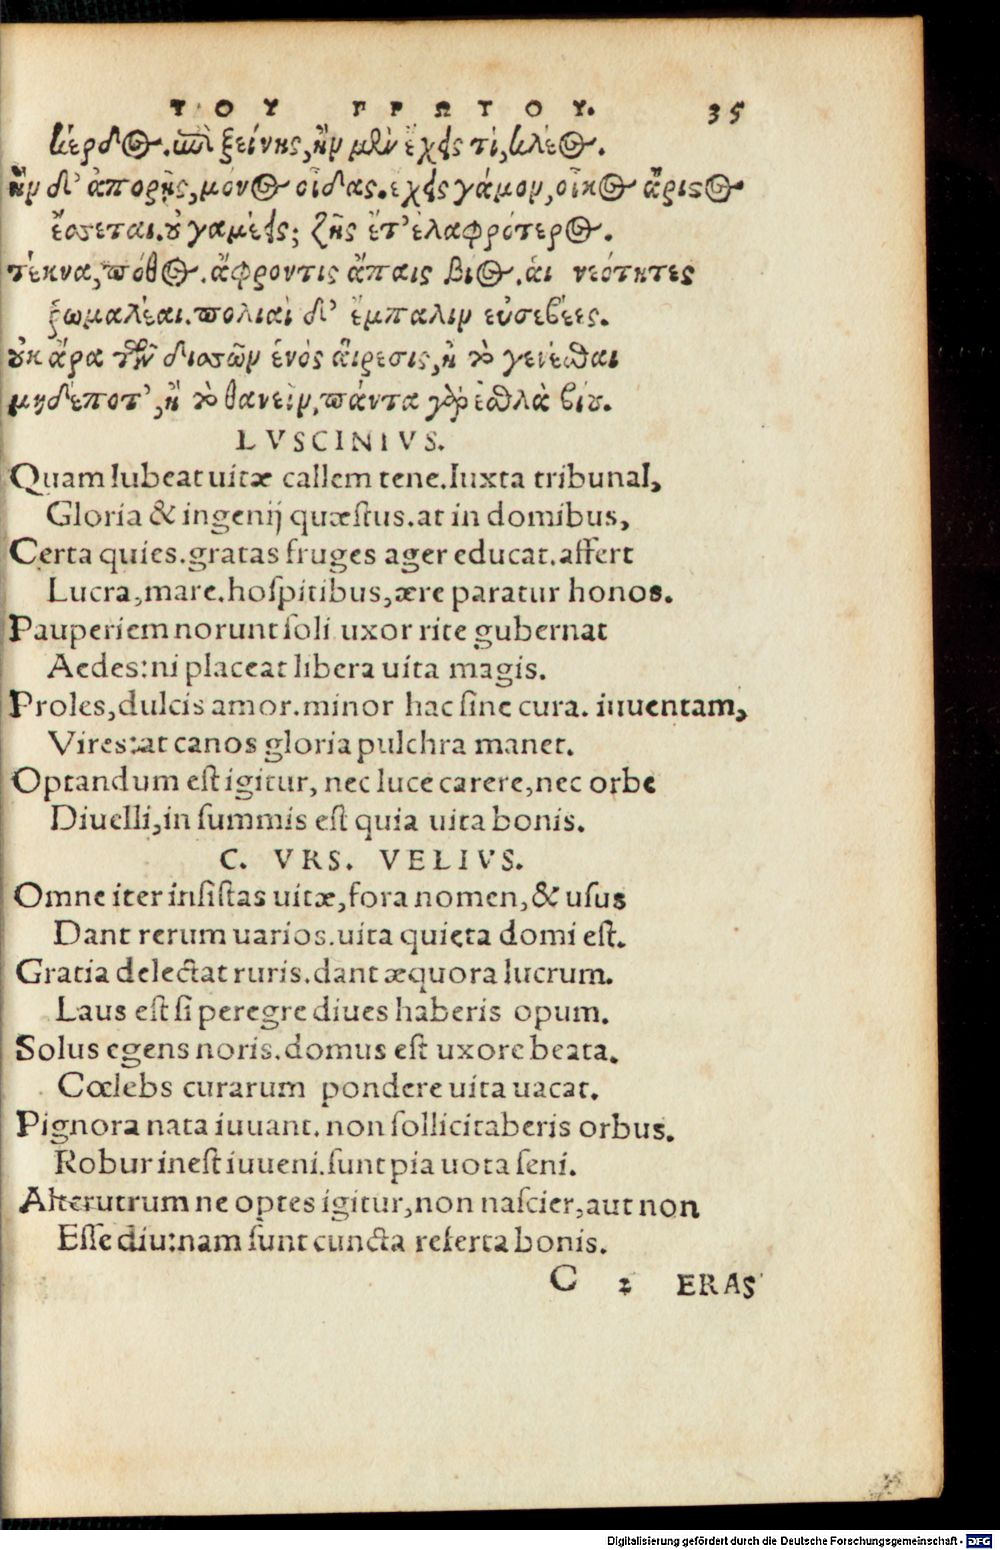 ΤΟΥ ΠΡΩΤΟΥ. 35
κέρδος. ἐπὶ ξείνης, ἢν μὲν ἔχῃς τὶ, κλέος.
ἢν δ' ἀπορῇς, μόνος οἶδας. ἔχεις γάμον, οἶκος ἄριστος
ἔσσεται. οὐ γαμέεις; ζῇς ἔτ' ἐλαφρότερος.
τέκνα, πόθος. ἄφροντις ἄπαις βίος. αἱ νεότητες
ῥωμαλέαι. πολιαὶ δ' ἔμπαλιν εὐσεβέες.
οὐκ ἄρα τῶν δισσῶν ἑνὸς αἵρεσις, ἢ τὸ γενέσθαι
μηδέποτ', ἢ τὸ θανεῖν, πάντα γὰρ ἐσθλὰ βίου.
LVSCINIVS.
Quam lubeat uitæ callem tene. Iuxta tribunal,
Gloria & ingenij quæstus. at in domibus,
Certa quies. gratas fruges ager educat. affert
Lucra, mare. hoſpitibus, ære paratur honos.
Pauperiem norunt ſoli uxor rite gubernat
Aedes: ni placeat libera uita magis.
Proles, dulcis amor. minor hac ſine cura. iuuentam,
Vires: at canos gloria pulchra manet.
Optandum eſt igitur, nec luce carere, nec orbe
Diuelli, in ſummis eſt quia uita bonis.
C. VRS. VELIVS.
Omne iter inſiſtas uitæ, fora nomen, & uſus
Dant rerum uarios. uita quieta domi eſt.
Gratia delectat ruris. dant æquora lucrum.
Laus eſt ſi peregre diues haberis opum.
Solus egens noris. domus eſt uxore beata.
Cœlebs curarum pondere uita uacat.
Pignora nata iuuant. non ſollicitaberis orbus.
Robur ineſt iuueni. ſunt pia uota ſeni.
Alterutrum ne optes igitur, non naſcier, aut non
Eſſe diu: nam ſunt cuncta referta bonis.
C 2 ERAS
Digitalisierung gefördert durch die Deutsche Forschungsgemeinschaft - DFG